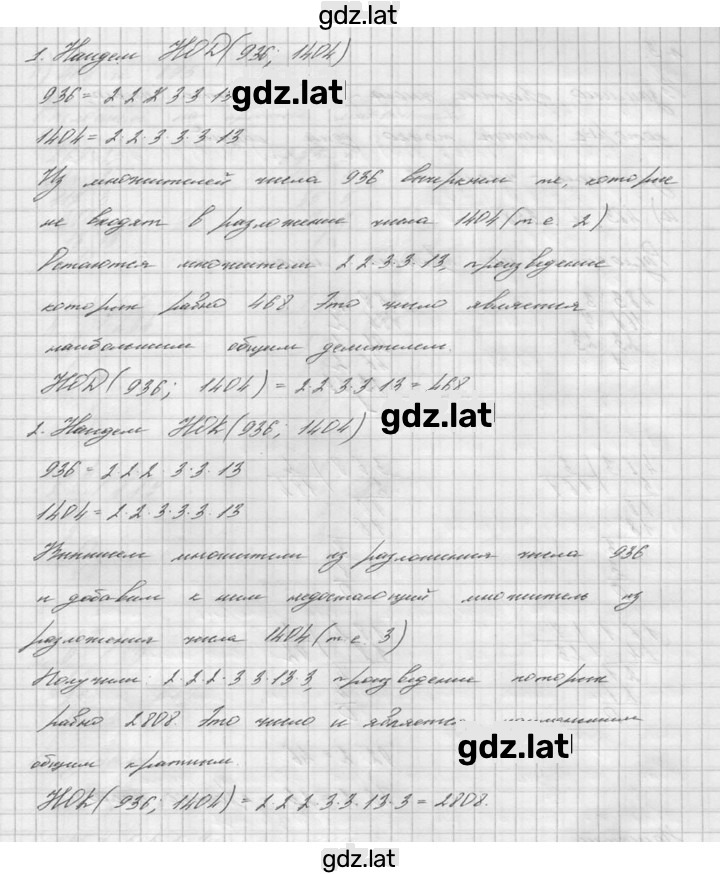 gdz.lat
1. Найдем НОД(936; 1404)
936 = 2·2·2·3·3·13 gdz.lat
1404 = 2·2·3·3·3·13
Из множителей числа 936 вычеркнем те, которые
не входят в разложение числа 1404 (т.е. 2)
Остаются множители 2·2·3·3·13, произведение
которых равно 468 Это число является
наибольшим общим делителем.
НОД(936; 1404) = 2·2·3·3·13 = 468
2. Найдем НОК(936; 1404) gdz.lat
936 = 2·2·2·3·3·13
1404 = 2·2·3·3·3·13
Выпишем множители из разложения числа 936
и добавим к ним недостающий множитель из
разложения числа 1404 (т.е. 3)
Получили: 2·2·2·3·3·13·3, произведение которых
равно 2808. Это число и является
gdz.lat
общим кратным.
НОК(936; 1404) = 2·2·2·3·3·13·3 = 2808.
gdz.lat